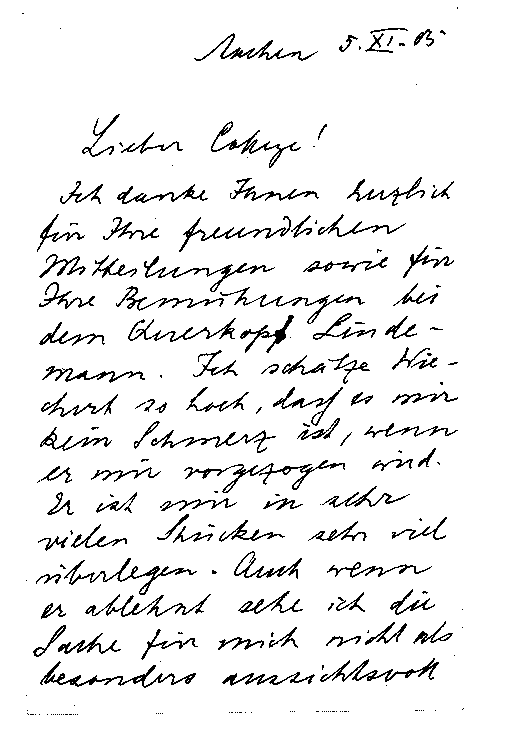 Aachen 5. XI. 05
Lieber College!
Ich danke Ihnen herzlich
für Ihre freundlichen
Mittheilungen sowie für
Ihre Bemühungen bei
dem Querkopf Linde-
mann. Ich schätze Wie-
chert so hoch, dass es mir
kein Schmerz ist, wenn
er mir vorgezogen wird.
Er ist mir in sehr
vielen Stücken sehr viel
überlegen. Auch wenn
er ablehnt sehe ich die
Sache für mich nicht als
besonders aussichtsvoll